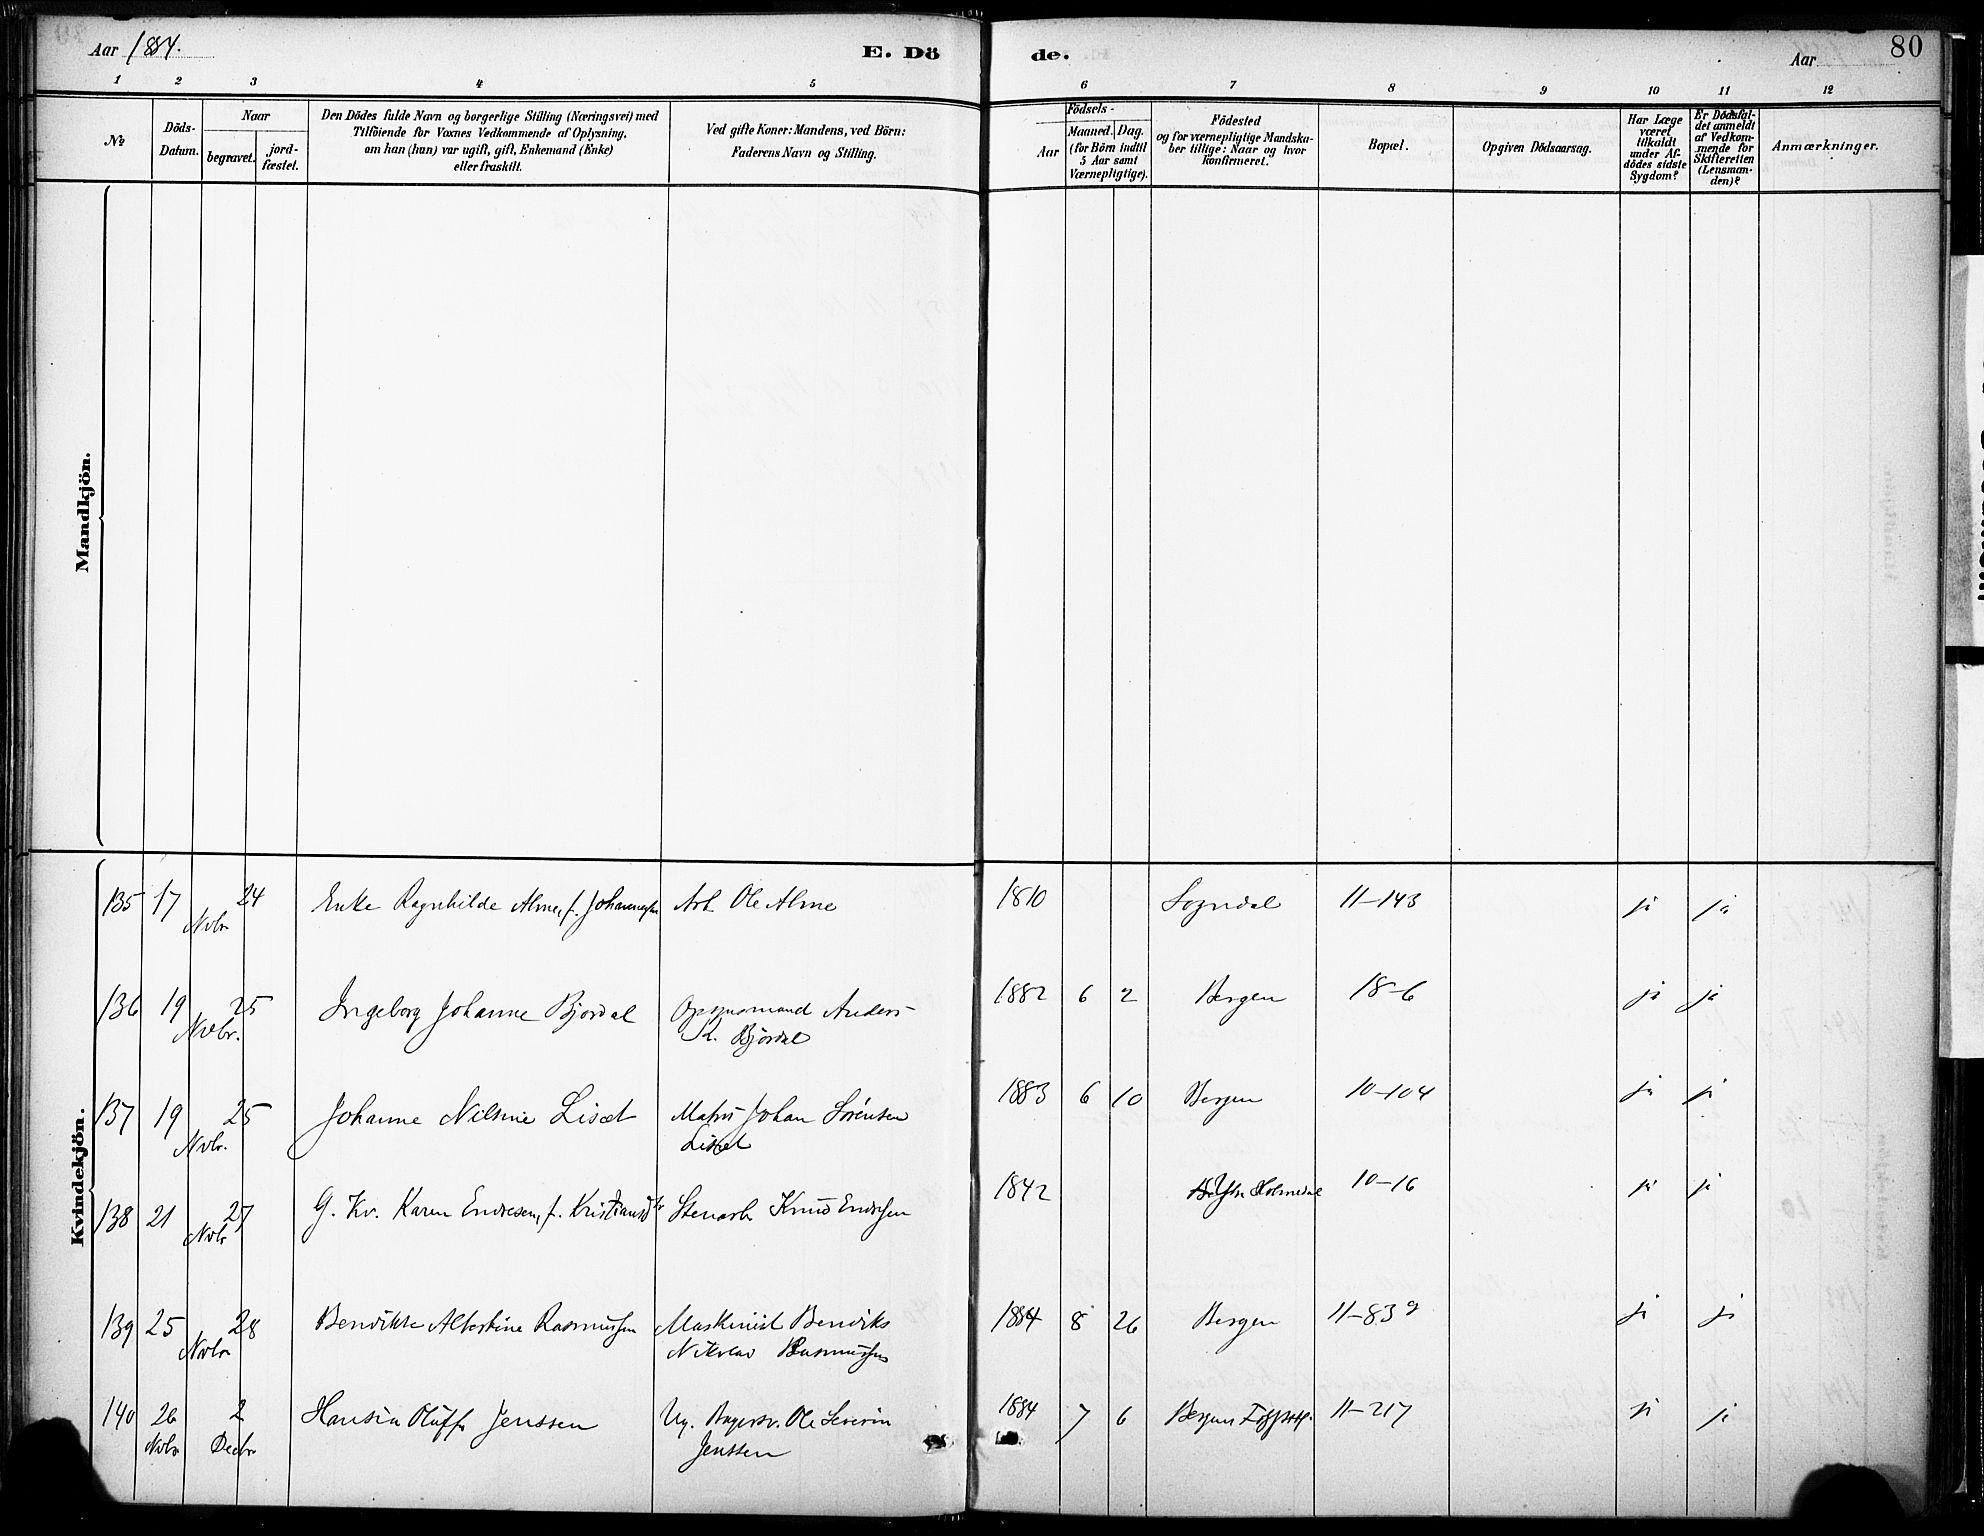 Aar 1884.
E. Dö
de.
Aar
80
1 2 3 4 5 6 7 8 9 10 11 12
№
Döds-
Datum.
Naar
begravet.
jord-
fæstet.
Den Dödes fulde Navn og borgerlige Stilling (Næringsvei) med
Tilföiende for Voxnes Vedkommende af Oplysning,
om han (hun) var ugift, gift, Enkemand (Enke)
eller fraskilt.
Ved gifte Koner: Mandens, ved Börn:
Faderens Navn og Stilling.
Födsels-
Aar
Maaned. Dag.
(for Börn indtil
5 Aar samt
Værnepligtige).
Födested
og for værnepligtige Mandska-
ber tillige: Naar og hvor
konfirmeret.
Bopæl.
Opgiven Dödsaarsag.
Har Læge
været
tilkaldt
under Af-
dödes sidste
Sygdom?
Er Dödsfal-
det anmeldt
af Vedkom-
mende for
Skifteretten
(Lensman-
den)?
Anmærkninger.
Mandkjön.
Kvindekjön.
135 17 24 Enke Ragnhilde Alme, f. Johannesen Arb Ole Alme 1810 Sogndal 11-143 ja ja
Nvbr
136 19 25 Ingeborg Johanne Bjordal Opsynsmand Anders 1882 6 2 Bergen 18-6 ja ja
Nvbr. K. Bjórdal
137 19 25 Johanne Nilsine Liset Matros Johan Sörensen 1883 6 10 Bergen 10-104 ja ja
Nvbr. Liset
138 21 27 G. Kv. Karen Endresen, f. Stenarb Knud Endresen 1842 Ytre Holmedal 10-16 ja ja
Nvbr
139 25 28 Bendikte Albertine Rasmussen Maskinist Bendiks 1884 8 26 Bergen 11-83 ja ja
Nvbr Nikolai Rasmussen
140 26 2 Hansina Oluffa Jenssen Ug. Bagersv. Ole Severin 1884 7 6 Bergens 11-217 ja ja
Nvbr Decbr Jenssen